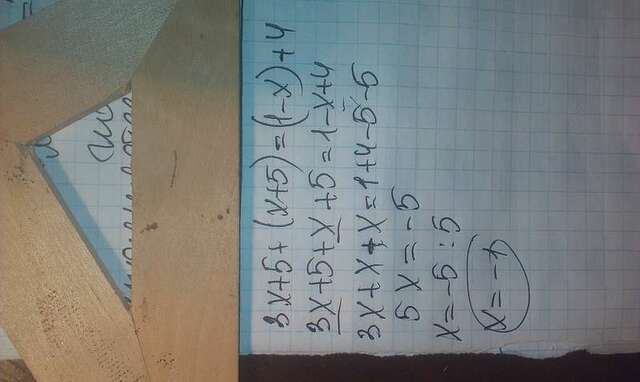 3x+5+(x+5)=(1-x)+4
3x+5+x+5=1-x+4
3x+x+x=1+4-5-5
5x=-5
x=-5:5
x=-1